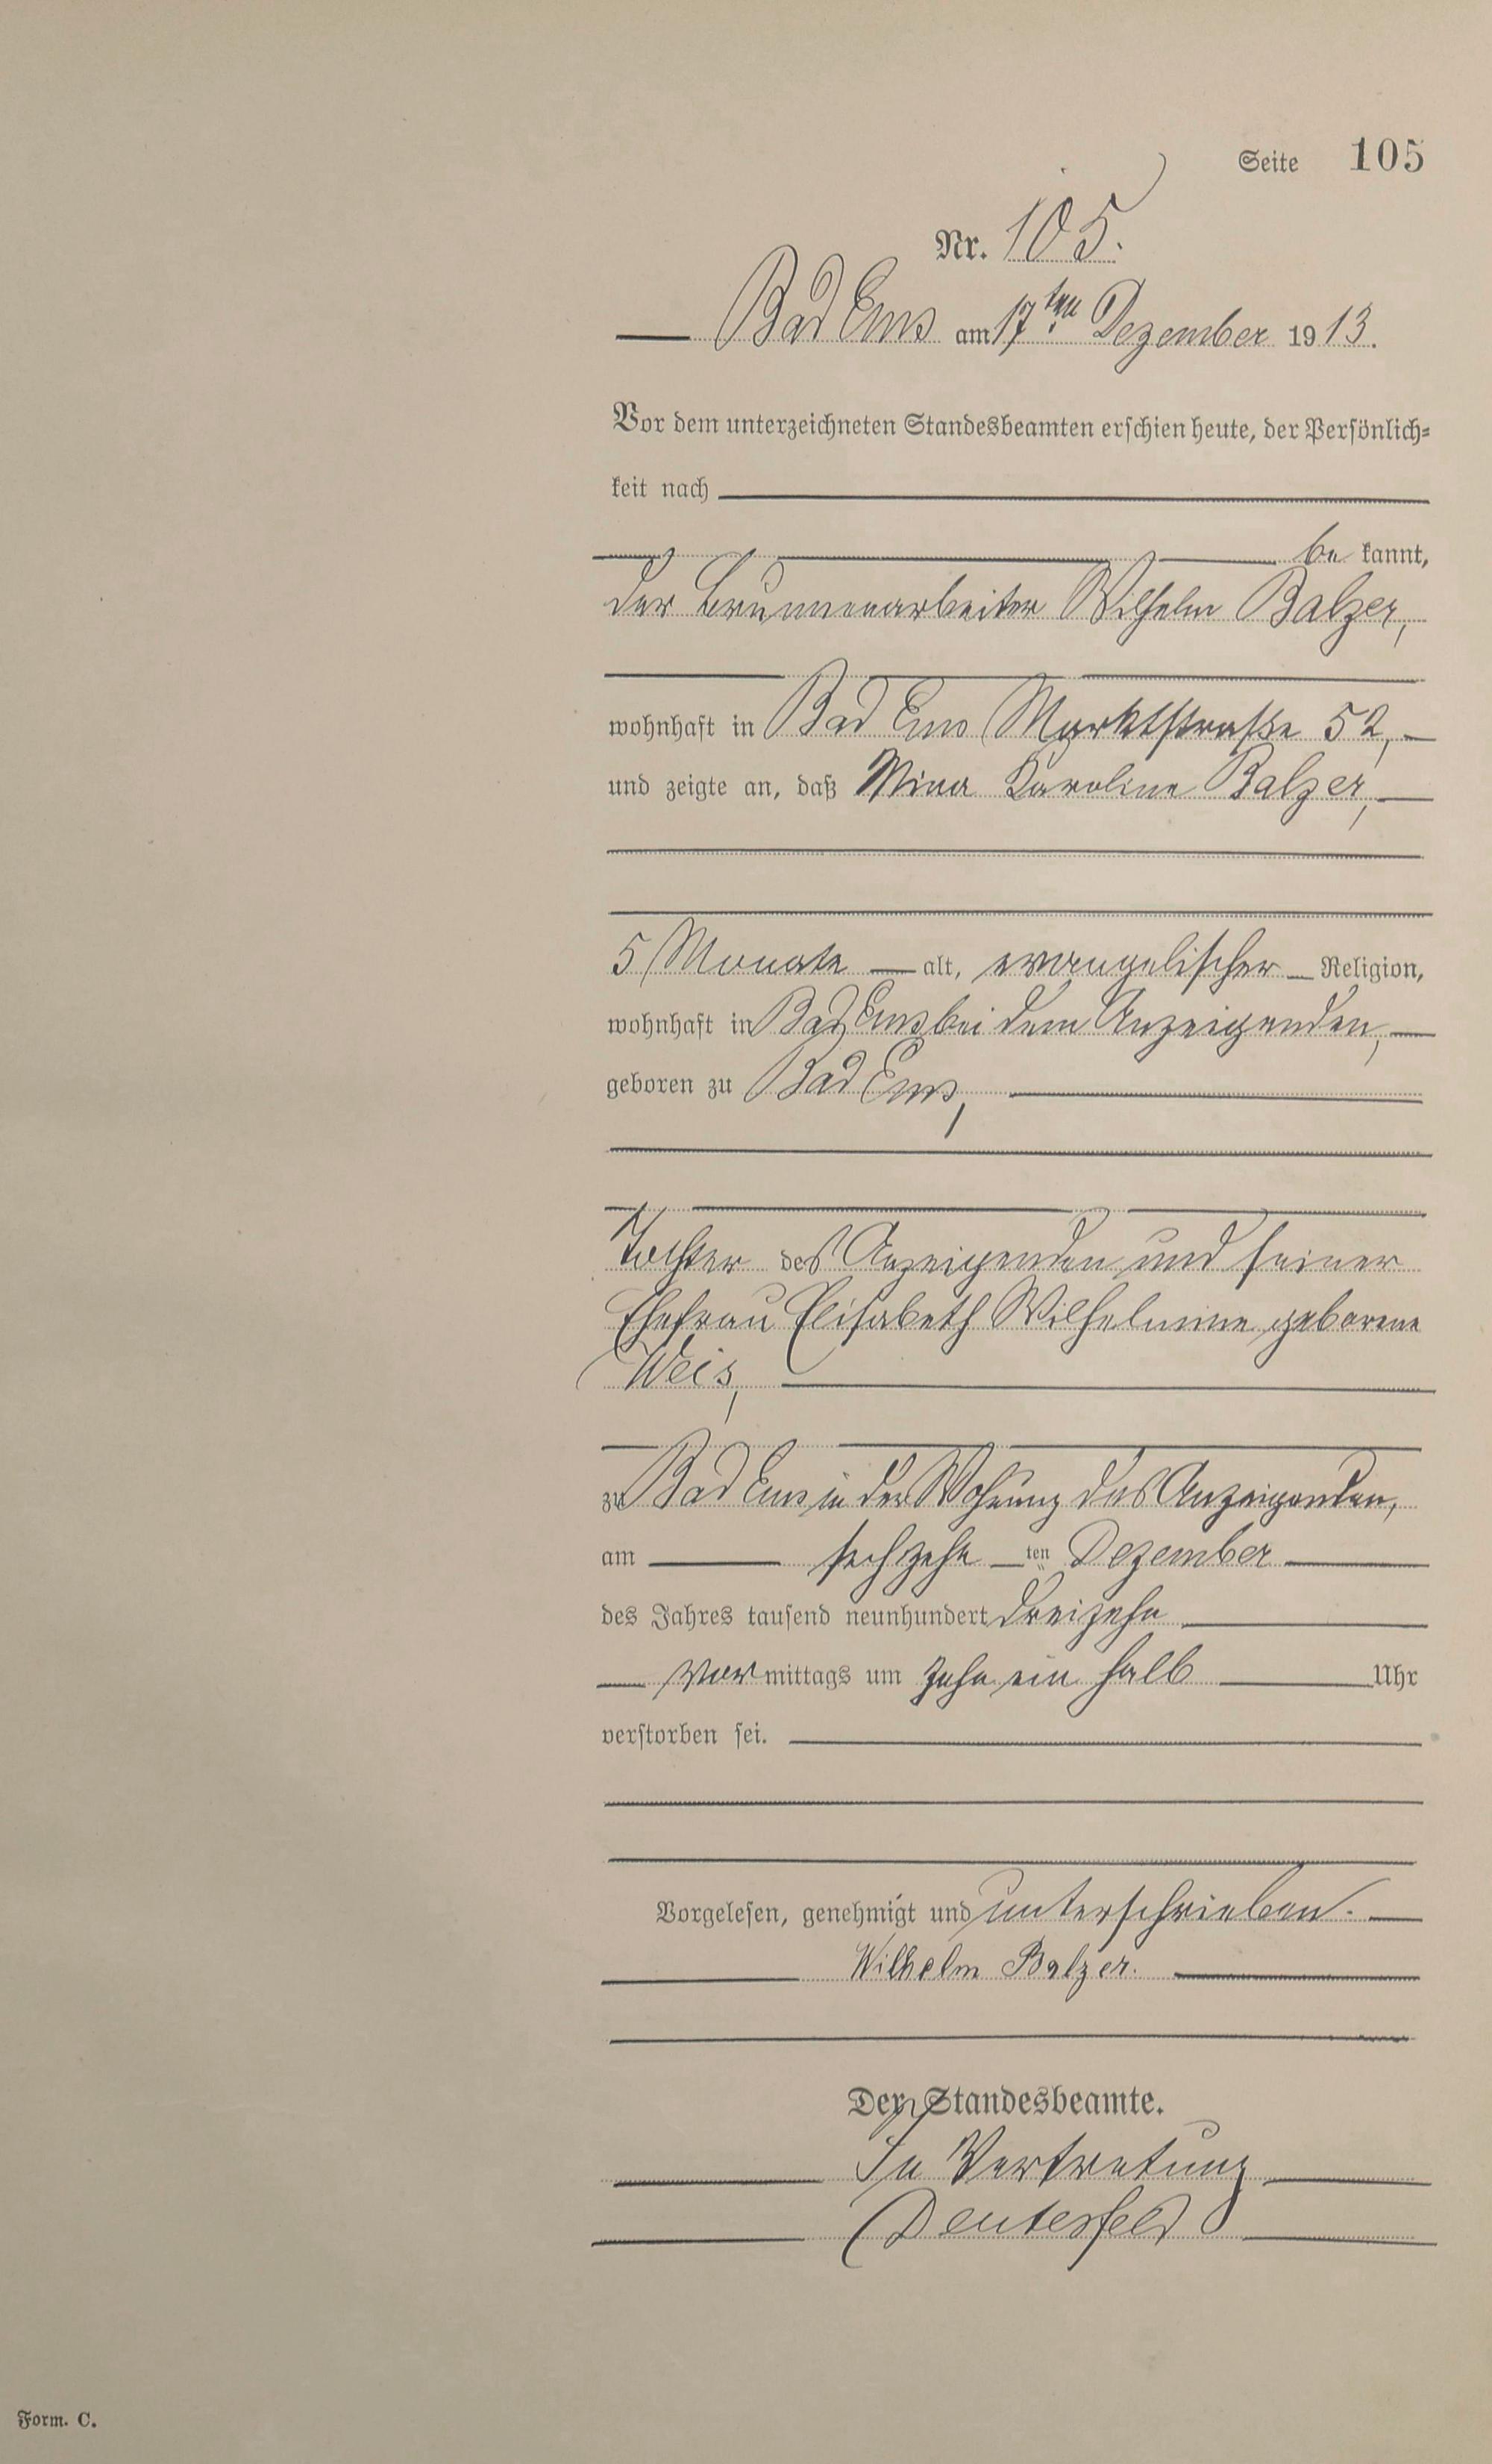 Seite 105
Nr. 105.
Bad Ems am 17ten Dezember 1913.
Vor dem unterzeichneten Standesbeamten erschien heute, der Persönlich=
keit nach
be kannt,
der Brunnenarbeiter Wilhelm Balzer,
wohnhaft in Bad Ems Marktstraße 52,
und zeigte an, daß Mina Karoline Balzer,
5 Monate alt, evangelischer Religion,
wohnhaft in Bad Ems bei dem Anzeigenden,
geboren zu Bad Ems,
Tochter des Anzeigenden und seiner
Ehefrau Elisabeth Wilhelmine geborene
Weis,
zu Bad Ems in der Wohnung des Anzeigenden,
am sechzehn ten Dezember
des Jahres tausend neunhundert dreizehn
Vor mittags um zehn ein halb Uhr
verstorben sei.
Vorgelesen, genehmigt und unterschrieben.
Wilhelm Balzer.
Der Standesbeamte.
In Vertretung
Deuterfeld
Form. C.